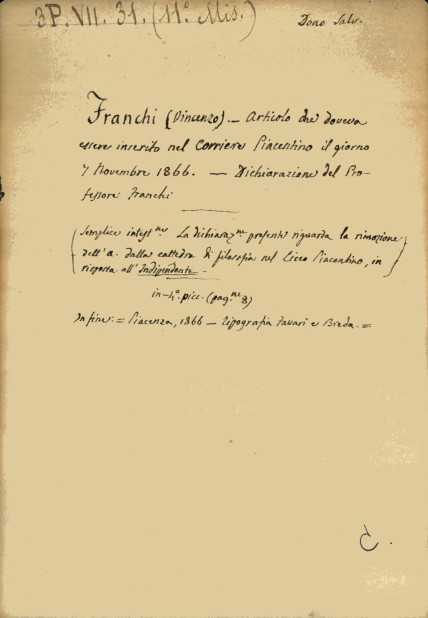 3P. VII. 31. (11º. Mis.)
Dono Salv.
Franchi (Vincenzo). — Articolo che doveva
essere inserito nel Corriere Piacentino il giorno
7 Novembre 1866. — Dichiarazione del Pro-
fessore Franchi
(Semplice intestne. La dichiarazne. presente riguarda la rimozione
dell'a. dalla cattedra di filosofia nel Liceo Piacentino, in
risposta all'Indipendente.)
in-4º. picc. (pagne 8)
In fine: = Piacenza, 1866 — Tipografia Tavari e Breda. =